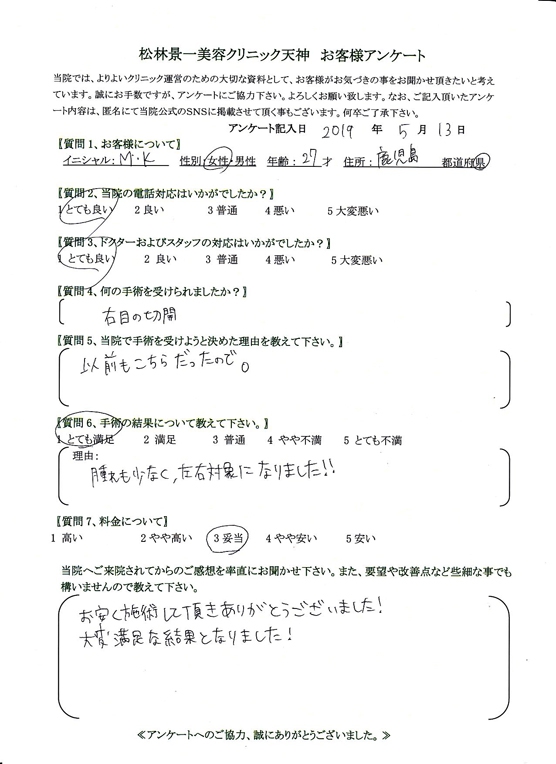 松林景一美容クリニック天神 お客様アンケート
当院では、よりよいクリニック運営のための大切な資料として、お客様がお気づきの事をお聞かせ頂きたいと考え
ています。誠にお手数ですが、アンケートにご協力下さい。よろしくお願い致します。なお、ご記入頂いたアンケ
ート内容は、匿名にて当院公式のSNSに掲載させて頂く事もございます。何卒ご了承下さい。
アンケート記入日 2019 年 5 月 13 日
〖質問1、お客様について〗
イニシャル: M・K 性別:女性・男性 年齢:27才 住所:鹿児島 都道府県
〖質問2、当院の電話対応はいかがでしたか?〗
1 とても良い 2 良い 3 普通 4 悪い 5 大変悪い
〖質問3、ドクターおよびスタッフの対応はいかがでしたか?〗
1 とても良い 2 良い 3 普通 4 悪い 5 大変悪い
〖質問4、何の手術を受けられましたか?〗
右目の切開
〖質問5、当院で手術を受けようと決めた理由を教えて下さい。〗
以前もこちらだったので。
〖質問6、手術の結果について教えて下さい。〗
1 とても満足 2 満足 3 普通 4 やや不満 5 とても不満
理由:
腫れも少なく、左右対象になりました!!
〖質問7、料金について〗
1 高い 2 やや高い 3 妥当 4 やや安い 5 安い
当院へご来院されてからのご感想を率直にお聞かせ下さい。また、要望や改善点など些細な事でも
構いませんので教えて下さい。
お安く施術して頂きありがとうございました!
大変満足な結果となりました!
≪アンケートへのご協力、誠にありがとうございました。≫